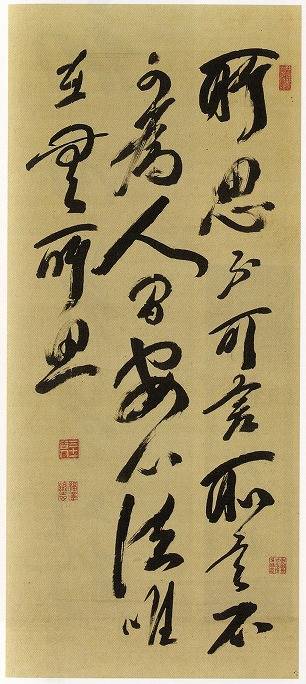 所思不可言所言不
可為人間安心法唯
在無所思